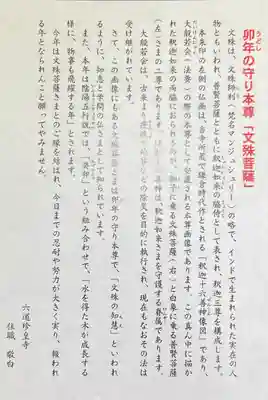 卯年の守り本尊「文殊菩薩」
うどし
文殊は、文殊師利(梵名マンジュシュリー)の略で、インドで生まれられた実在の人
物ともいわれ、普賢菩薩とともに釈迦如来の脇侍として表され、釈迦三尊を構成します。
本朱印の左側の仏画は、当寺所蔵で鎌倉時代作とされる「釈迦十六善神像図」であり、
大般若会(法要)の際の本尊として安置される本尊画像であります。この真ん中に描か
れた釈迦如来の両脇におられるのが、獅子に乗る文殊菩薩(右)と白象に乗る普賢菩薩
(左)さまの二尊であります。 善神は、釈迦如来さまを守護する眷属であります。
大般若会は、古来より 除災を目的に執行され、現在もなおその法は
受け継がれています。
さて、この画像にもある文殊菩薩さまは卯年の守り本尊で、「文殊の知慧」といわれ
るように、知恵と学問の仏さまとして知られています。
また、本年は陰陽五行説では、「癸卯」という組み合わせで、「水を得た木が成長する
様に、物事も飛躍する年」とされます。
今年は文殊菩薩さまとのご縁を結ばれ、今日までの忍耐や努力が大きく実り、報われ
る年となられんこと願ってやみません。
六道珍皇寺
住職 敬白